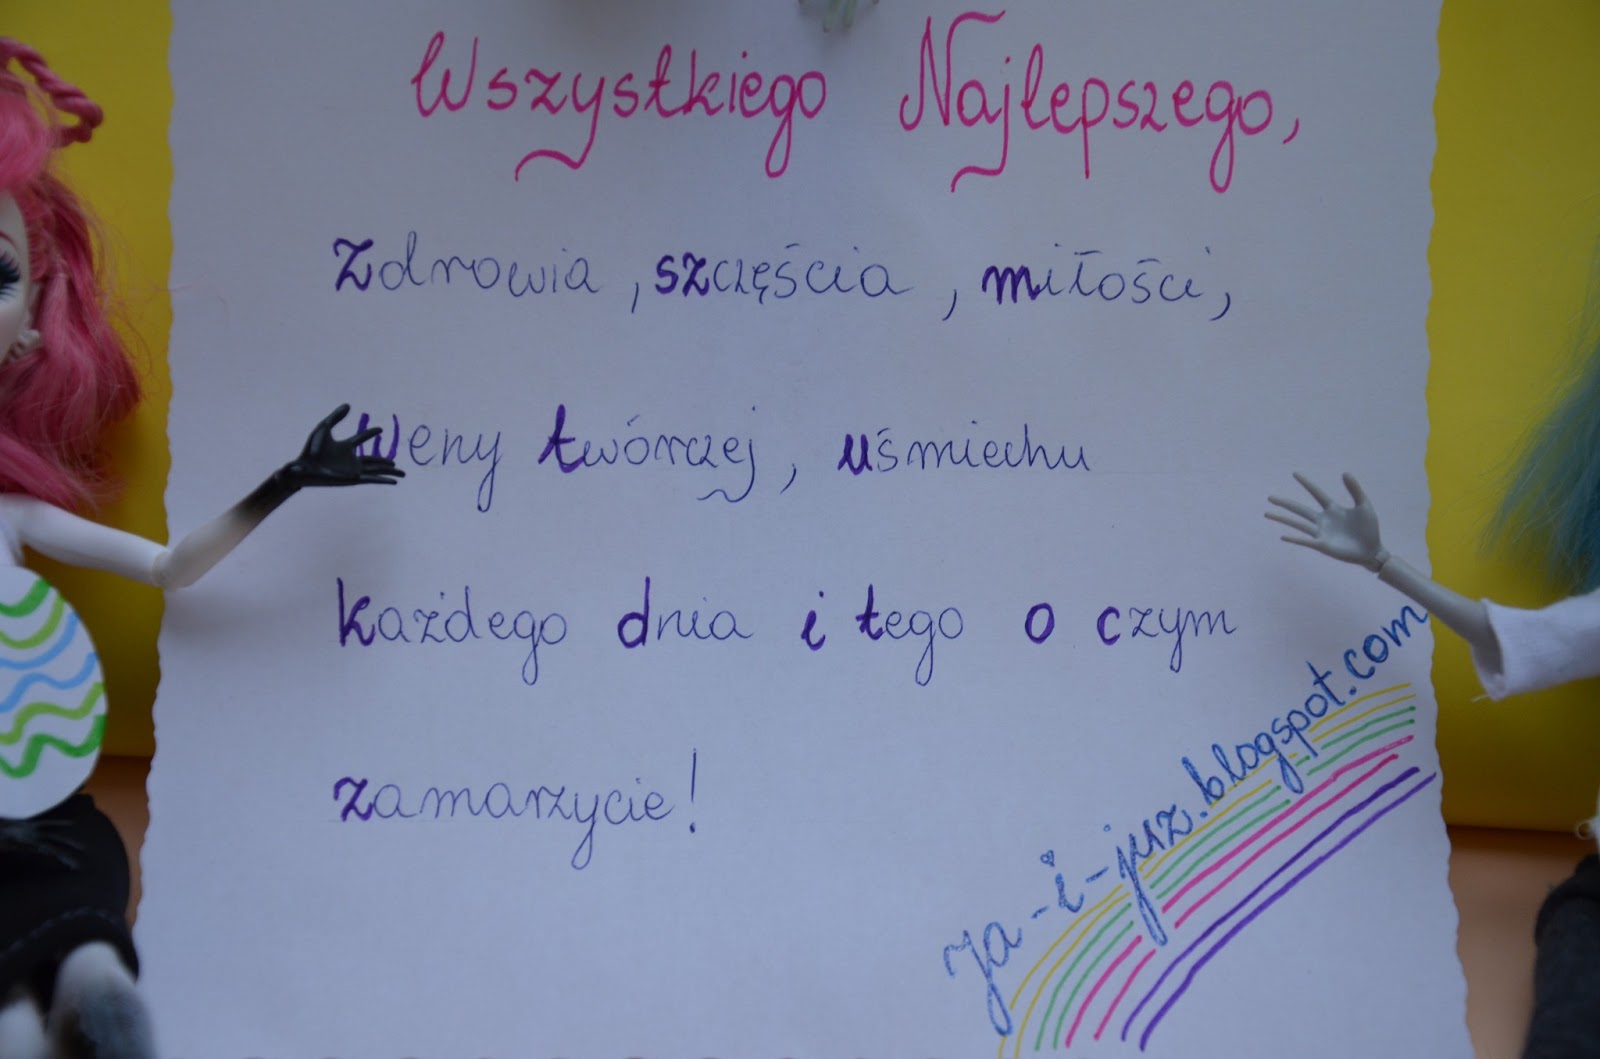 Wszystkiego Najlepszego,
Zdrowia, szczęścia, miłości,
Weny twórczej, uśmiechu
każdego dnia i tego o czym
zamarzycie!
Ja-i-jusz.blogspot.com